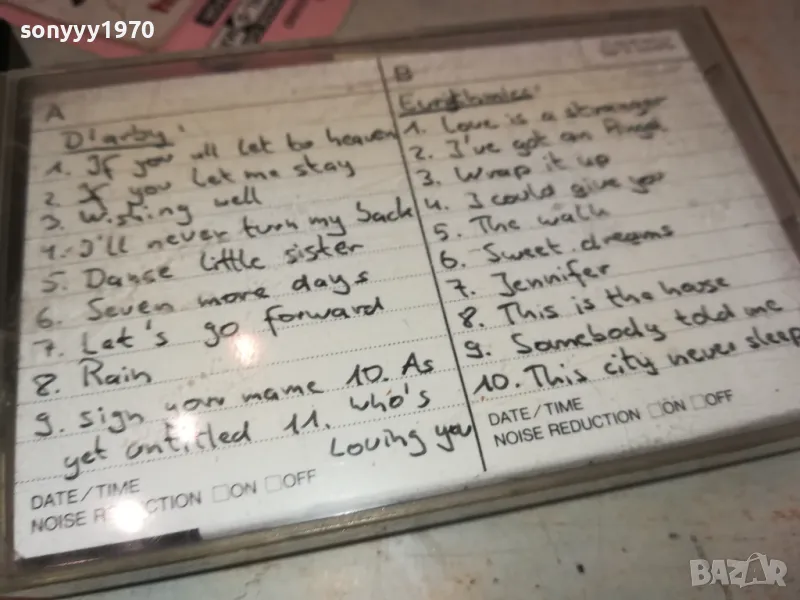 sonyyy1970
A
D'arby'
1. If you all let to heaven
2. If you let me stay
3. Wishing well
4. I'll never turn my back
5. Danse little sister
6. Seven more days
7. Let's go forward
8. Rain
9. sign your mame 10. As
yet untitled 11. who's
Loving you
DATE/TIME
NOISE REDUCTION □ON □OFF
B
Eurythmics'
1. Love is a stranger
2. I've got an Angel
3. Wrap it up
4. I could give you
5. The walk
6. Sweet dreams
7. Jennifer
8. This is the house
9. Somebody told me
10. This city never sleep
DATE/TIME
NOISE REDUCTION □ON □OFF
BAZAR